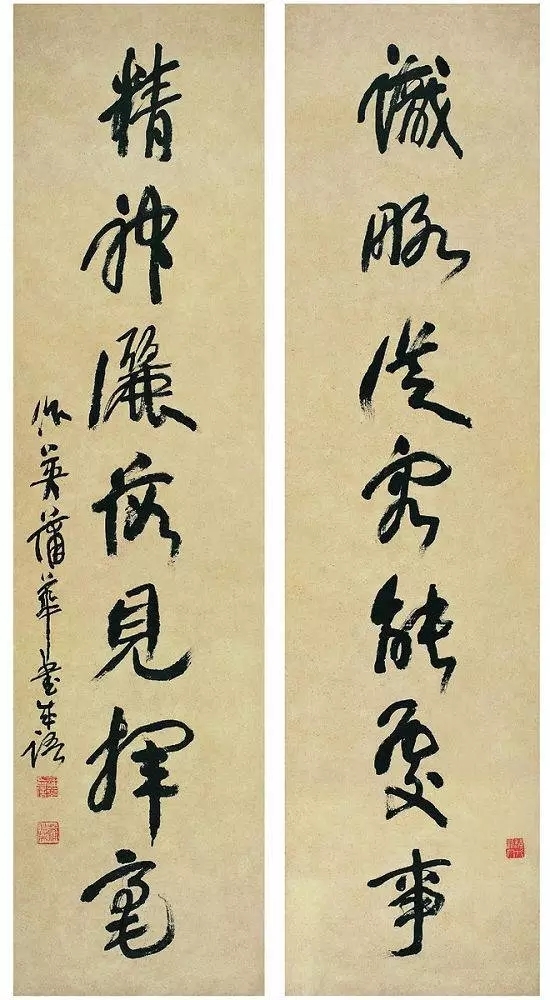 識略從容能處事
精神灑落見揮毫
作英蒲華書成語